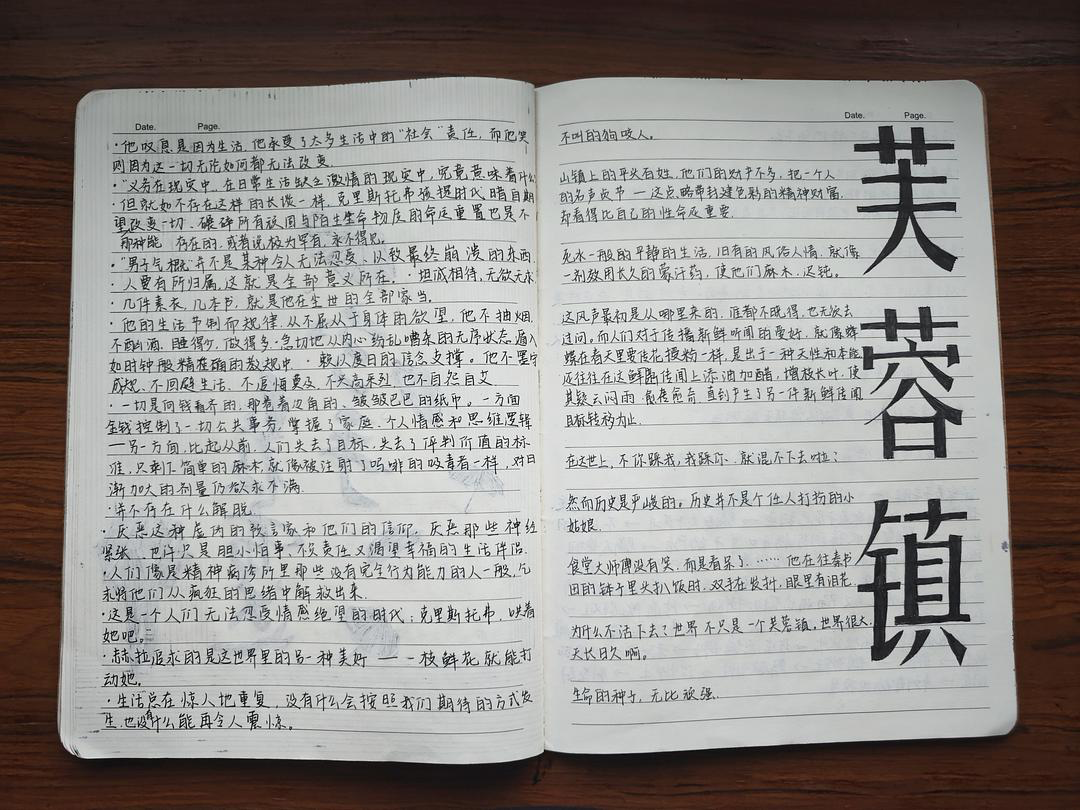 Date. Page.
·他叹息是因为生活,他承受了太多生活中的"社会"责任,而他哭
则因为这一切无论如何都无法改变.
·"义务在现实中,在日常生活缺乏激情的现实中,究竟意味着什么
·但就如不存在这样的长谈一样,克里斯托弗被捉时代暗自期
望改变一切、砸碎所有被困与陌生生命物应的命运重置也是不
那种能 存在的,或者说极为罕有,永不得见。
·"男子气概"并不是某种令人无法忍受、以致最终崩溃的东西
·人要有所归属,这就是全部意义所在。·坦诚相待,无欲无求
·几件素衣,几本书,就是他在尘世的全部家当。
·他的生活节制而规律,从不屈从于身体的欲望,他不抽烟,
不酗酒,睡得少,做得多·急切地从内心纷乱嘈杂的无序状态遁入
如时钟般精准确的教规中·赖以度日的信念支撑。他不墨守
成规、不回避生活、不追悔莫及、不兴高采烈,也不自怨自艾
·一切是向钱看齐的,那卷着边角的、皱皱巴巴的纸币。一方面
金钱控制了一切公共事务,掌握了家庭、个人情感和思维逻辑
—另一方面,比起从前,人们失去了目标,失去了评判价值的标
准,只剩下简单的麻木,就像被注射了吗啡的吸毒者一样,对日
渐加大的剂量仍欲求不满.
·并不存在什么解脱.
·厌恶这种虚伪的预言家和他们的信仰,厌恶那些神经
紧张、也许只是胆小怕事、不负责任又渴望幸福的生活伴侣.
·人们像是精神病诊所里那些没有完全行为能力的人一般,乞
求将他们从疯狂的思绪中解救出来.
·这是一个人们无法忍受情感绝望的时代;克里斯托弗,哄着
她吧。
·赫拉追求的是这世界里的另一种美好——一枝鲜花就能打
动她.
·生活总在惊人地重复,没有什么会按照我们期待的方式发
生,也没有什么能再令人震惊。
Date. Page.
不叫的狗咬人。
山镇上的平头百姓,他们的财产不多,把一个人
的名声贞节——这点略带封建色彩的精神财富,
却看得比自己的性命还重要.
死水一般的平静的生活,旧有的风俗人情,就像
一剂效用长久的蒙汗药,使他们麻木,迟钝。
这风声最初是从哪里来的,谁都不晓得,也无从去
过问。而人们对于传播新鲜听闻的爱好,就像蜂
蝶在春天里要传花授粉一样,是出于一种天性和本能
还往往在这鲜闻传闻上添油加醋,增枝长叶,使
其疑云闷雨,直到产生了另一件新鲜传闻
目标转移为止.
在这世上,不你踩我,我踩你,就混不下去啦?
然而历史是严峻的。历史并不是个任人打扮的小
姑娘.
食堂大师傅没有笑,而是看呆了……他在往秦书
田的钵子里头扒饭时,双手在发抖,眼里有泪花.
为什么不活下去?世界不只是一个芙蓉镇。世界很大.
天长日久啊。
生命的种子,无比顽强.
芙
蓉
镇